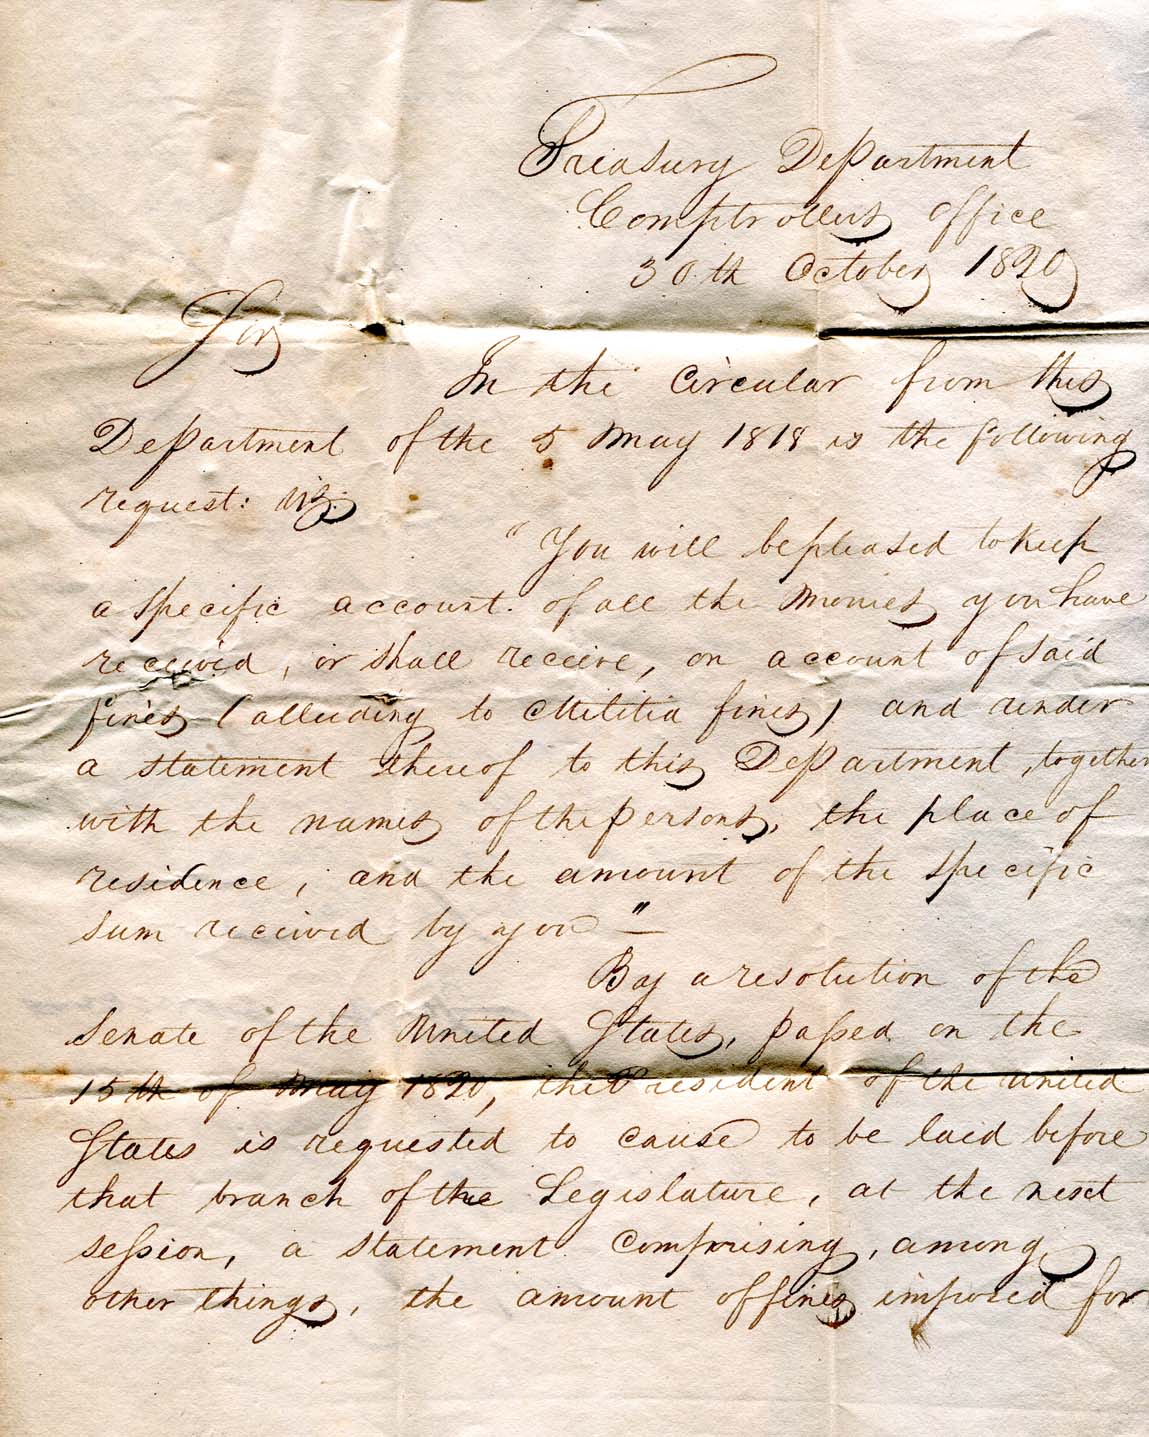 Treasury Department
Comptrollers office
30th October 1820
Sir
In the Circular from this
Department of the 5 May 1818 is the following
request: viz:
"You will be pleased to keep
a specific account of all the monies you have
received, or shall receive, on account of said
fines (alluding to Militia fines) and render
a statement thereof to this Department, together
with the names of the persons, the place of
residence, and the amount of the specific
sum received by you"
By a resolution of the
Senate of the United States, passed on the
15th of May 1820, the President of the United
States is requested to cause to be laid before
that branch of the Legislature, at the next
session, a statement comprising, among
other things, the amount of fines imposed for